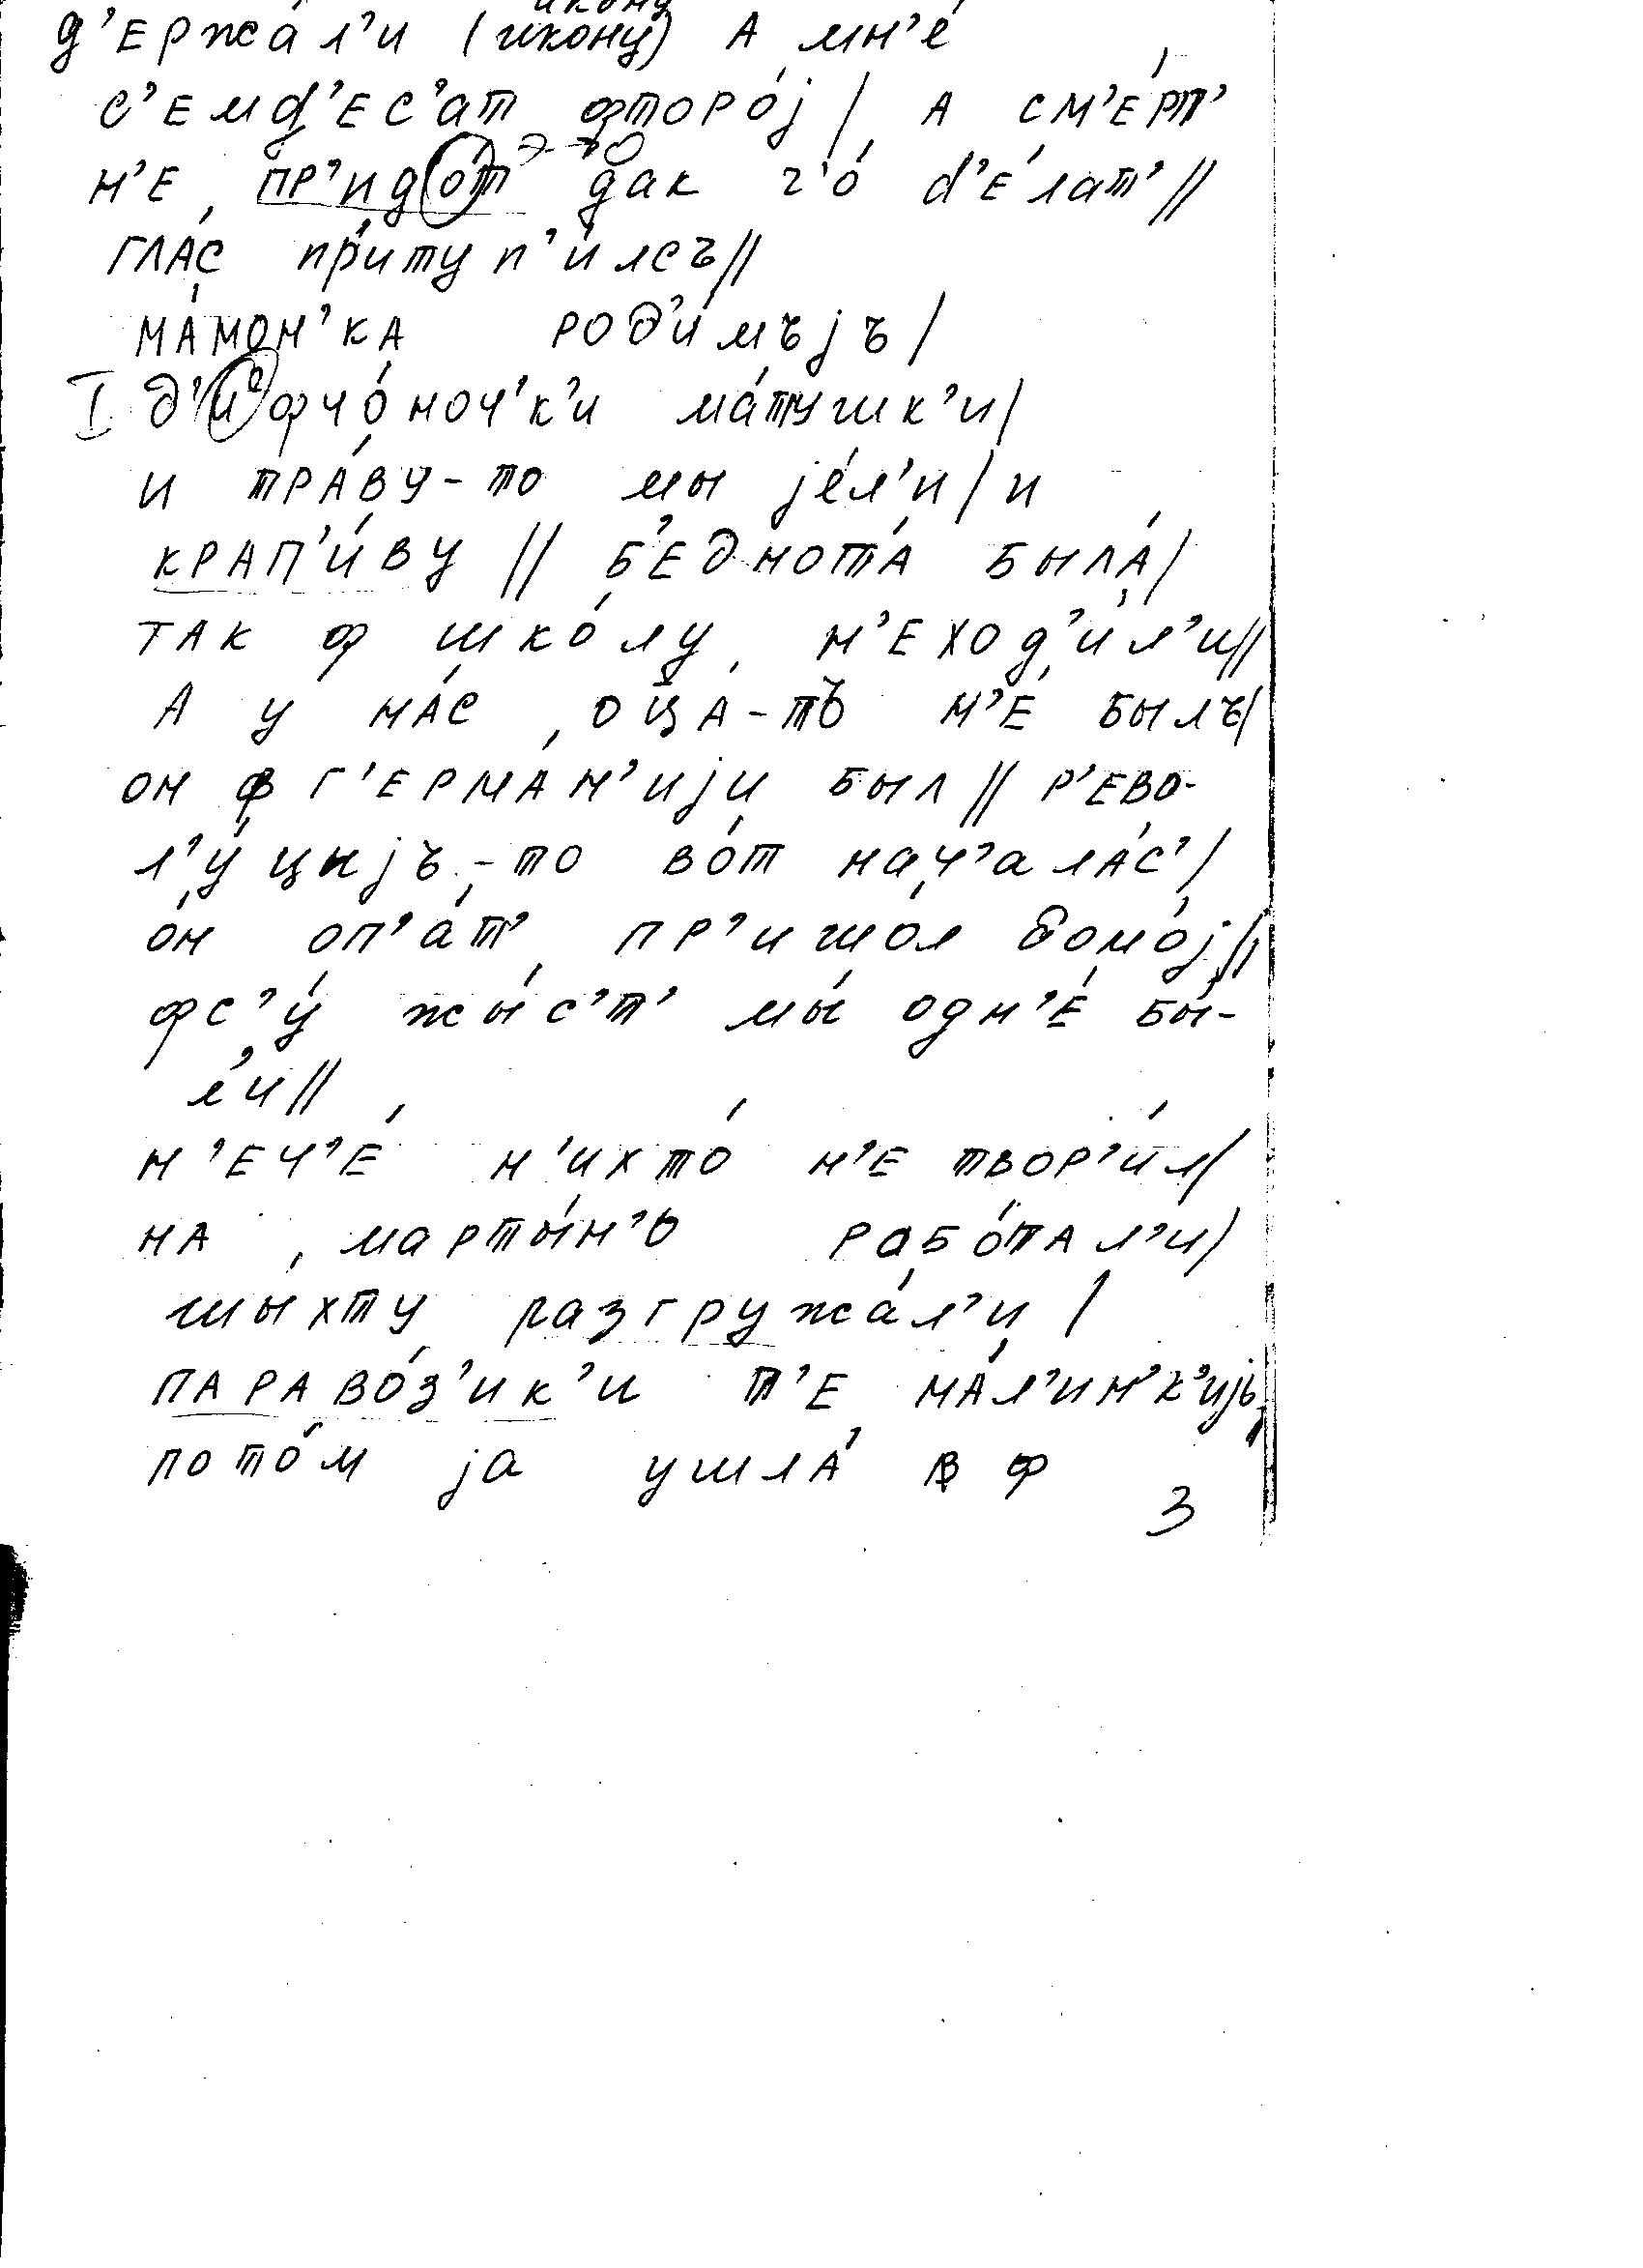 икону
д'ержа́л'и (икону) А мн'е́
с'емд'ес'ат фторо́j / А см'е́рт'
н'е пр'идо́т э→о дак ч'о́ д'е́лат' //
гла́с притуп'и́лсъ //
ма́мон'ка род'и́мъjъ /
I д'ифчо́ноч'к'и ма́тушк'и /
и тра́ву-то мы jе́л'и / и
крап'и́ву // б'еднота́ была́ /
так ф шко́лу н'еход'и́л'и //
А у на́с оца́-тъ н'е́ былъ /
он ф г'ерма́н'иjи был // р'ево-
л'у́цыjъ-то во́т нач'ала́с' /
о́н оп'а́т' пр'ишо́л домо́j //
фс'у́ жы́с'т' мы́ одн'е́ бы́-
л'и //
н'еч'е́ н'ихто́ н'е твор'и́л /
на марты́н'ь рабо́тал'и /
шыхту разгружа́л'и /
параво́з'ик'и т'е ма́л'ин'к'иjь,
пото́м jа ушла́ в ф
3